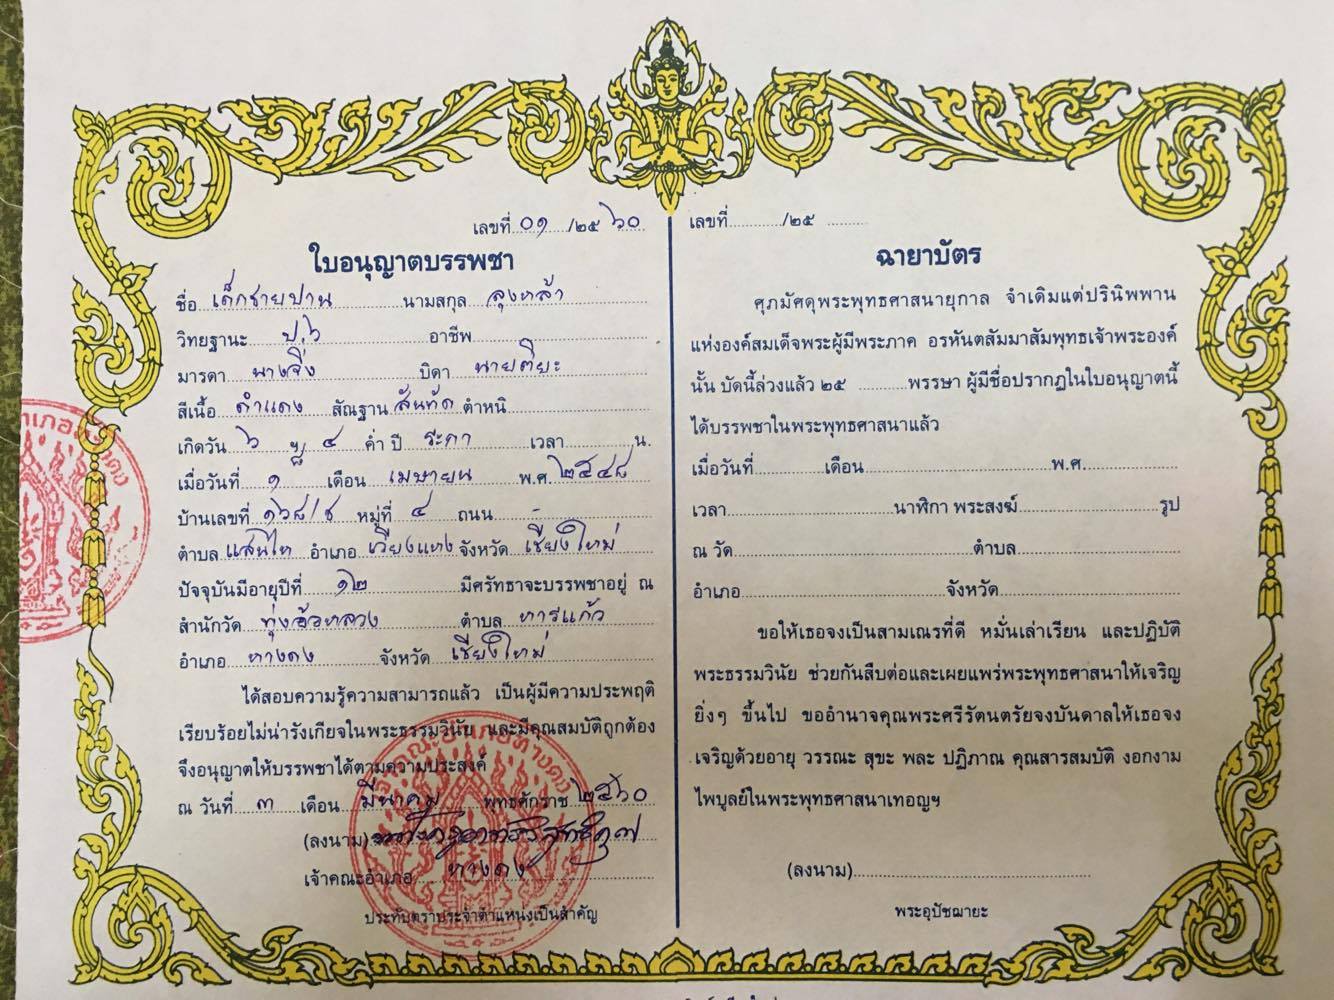 เลขที่ ๐๑ /๒๕ ๖๐
ใบอนุญาตบรรพชา
ชื่อ เด็กชายปาน นามสกุล ลุงหล้า
วิทยฐานะ ป.๖ อาชีพ
มารดา นางจิ่ง บิดา นายติยะ
สีเนื้อ ดำแดง สัณฐาน สันทัด ตำหนิ
เกิดวัน ๖ ฯ ๔ ค่ำ ปี ระกา เวลา น.
เมื่อวันที่ ๑ เดือน เมษายน พ.ศ. ๒๕๔๘
บ้านเลขที่ ๑๖๘/ช หมู่ที่ ๔ ถนน -
ตำบล แสนไห อำเภอ เวียงแหง จังหวัด เชียงใหม่
ปัจจุบันมีอายุปีที่ ๑๒ มีศรัทธาจะบรรพชาอยู่ ณ
สำนักวัด ทุ่งอ้อหลวง ตำบล หารแก้ว
อำเภอ หางดง จังหวัด เชียงใหม่
ได้สอบความรู้ความสามารถแล้ว เป็นผู้มีความประพฤติ
เรียบร้อยไม่น่ารังเกียจในพระธรรมวินัย และมีคุณสมบัติถูกต้อง
จึงอนุญาตให้บรรพชาได้ตามความประสงค์
ณ วันที่ ๓ เดือน มีนาคม พุทธศักราช ๒๕๖๐
(ลงนาม)
เจ้าคณะอำเภอ หางดง
ประทับตราประจำตำแหน่งเป็นสำคัญ
เลขที่ /๒๕
ฉายาบัตร
ศุภมัศดุพระพุทธศาสนายุกาล จำเดิมแต่ปรินิพพาน
แห่งองค์สมเด็จพระผู้มีพระภาค อรหันตสัมมาสัมพุทธเจ้าพระองค์
นั้น บัดนี้ล่วงแล้ว ๒๕ พรรษา ผู้มีชื่อปรากฏในใบอนุญาตนี้
ได้บรรพชาในพระพุทธศาสนาแล้ว
เมื่อวันที่ เดือน พ.ศ.
เวลา นาฬิกา พระสงฆ์ รูป
ณ วัด ตำบล
อำเภอ จังหวัด
ขอให้เธอจงเป็นสามเณรที่ดี หมั่นเล่าเรียน และปฏิบัติ
พระธรรมวินัย ช่วยกันสืบต่อและเผยแพร่พระพุทธศาสนาให้เจริญ
ยิ่งๆ ขึ้นไป ขออำนาจคุณพระศรีรัตนตรัยจงบันดาลให้เธอจง
เจริญด้วยอายุ วรรณะ สุขะ พละ ปฏิภาณ คุณสารสมบัติ งอกงาม
ไพบูลย์ในพระพุทธศาสนาเทอญฯ
(ลงนาม)
พระอุปัชฌายะ